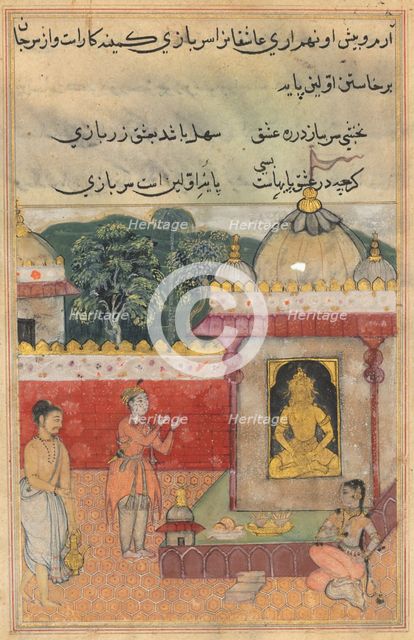 از درویش او نهم اری عاشقانرا سر بازی کمینه کار است و از سر جان
برخاستن اولین پایه
نخشبی سر بباز در ره عشق سهل باشد بعشق زر بازی
گرچه در عشق پایهاست بسی پایه اولین است سر بازی
Heritage
Heritage
Heritage
Heritage
Heritage
Heritage
Heritage